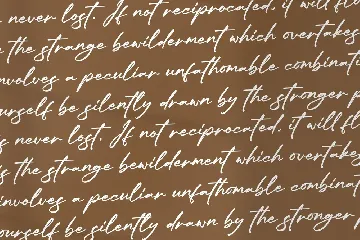 never lost. If not reciprocated, it will
the strange bewilderment which overtakes
involves a peculiar unfathomable
yourself be silently drawn by the stronger
is never lost. If not reciprocated, it will
the strange bewilderment which overtakes
involves a peculiar unfathomable
yourself be silently drawn by the stronger